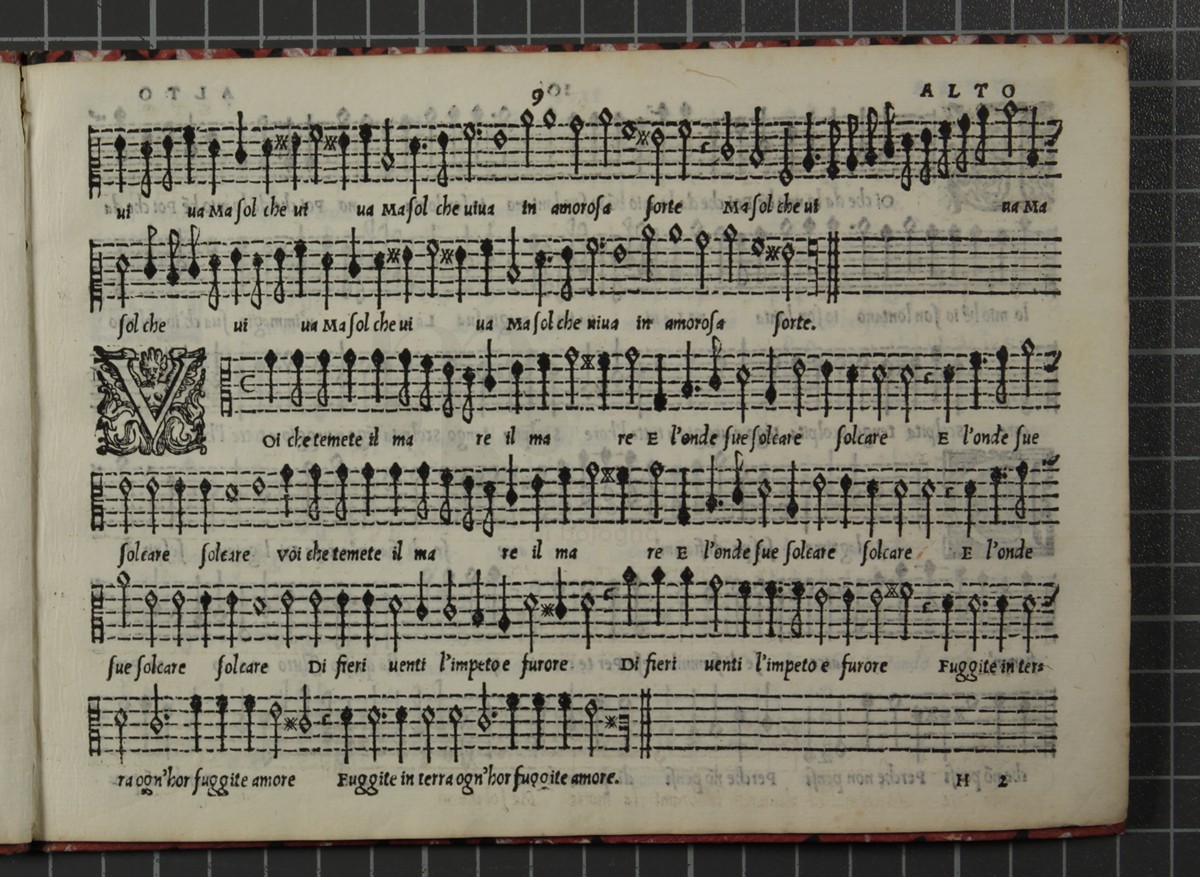 9 ALTO
ui ua Ma sol che ui ua Ma sol che uiua in amorosa sorte Ma sol che ui ua Ma
sol che ui ua Ma sol che ui ua Ma sol che uiua in amorosa sorte.
VOi che temete il ma re il ma re E l'onde sue solcare solcare E l'onde sue
solcare solcare Voi che temete il ma re il ma re E l'onde sue solcare solcare E l'onde
sue solcare solcare Di fieri uenti l'impeto e furore Di fieri uenti l'impeto e furore Fuggite in ter=
ra ogn'hor fuggite amore Fuggite in terra ogn'hor fuggite amore.
H 2